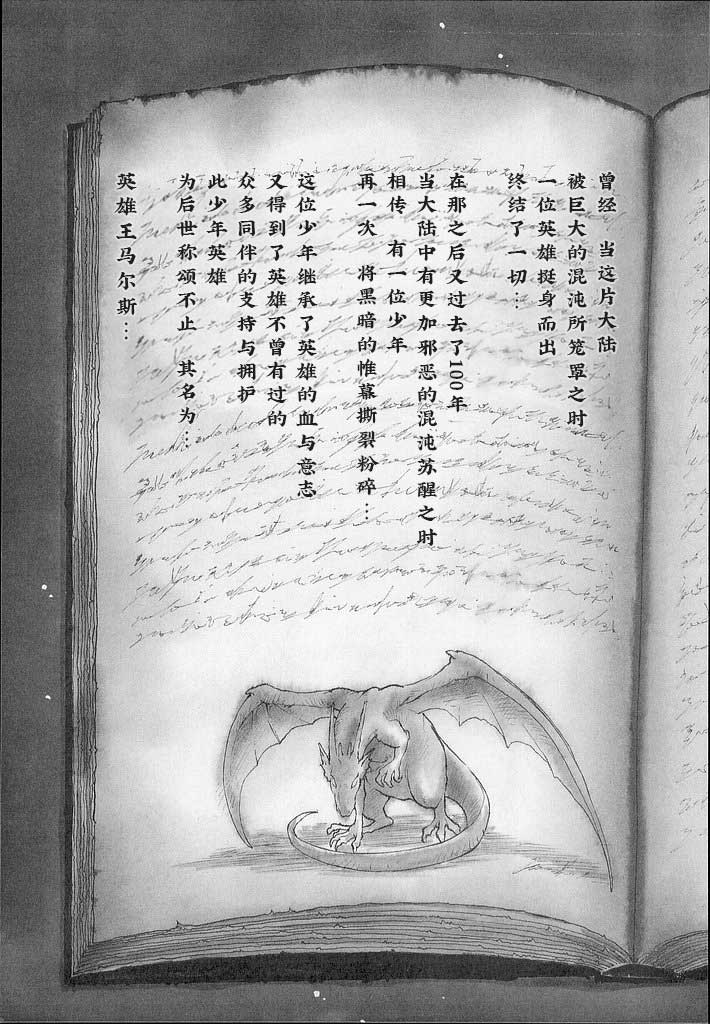 曾经　当这片大陆
被巨大的混沌所笼罩之时
一位英雄挺身而出
终结了一切…
在那之后又过去了100年
当大陆中有更加邪恶的混沌苏醒之时
相传　有一位少年
再一次　将黑暗的惟幕撕裂粉碎…
这位少年继承了英雄的血与意志
又得到了英雄不曾有过的
众多同伴的支持与拥护
此少年英雄
为后世称颂不止　其名为…
英雄王马尔斯…